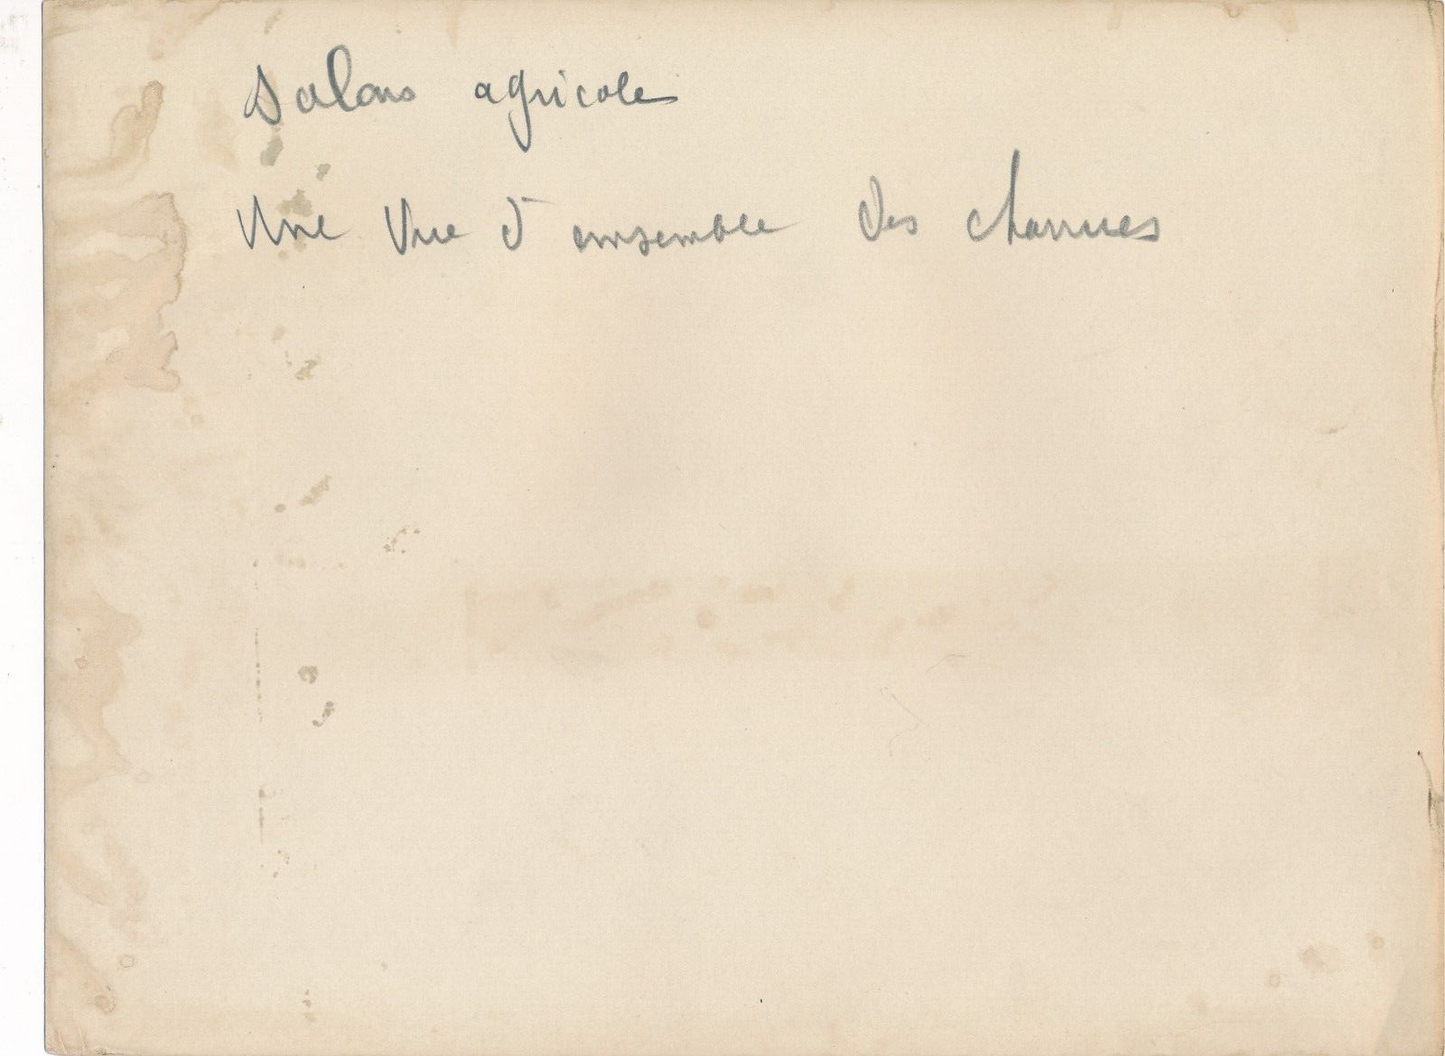 Salons agricole
Une vue d'ensemble des charrues